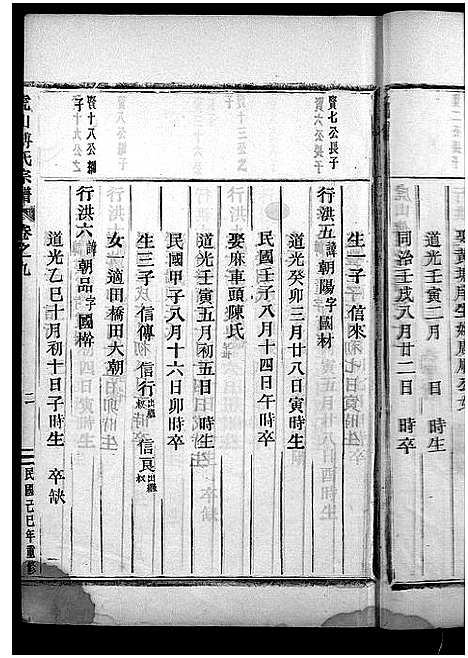 道光壬寅二月　日　時生
同治壬戌八月廿二日　時卒
生一子 信來
資七公長子
資六公長子
行洪五諱朝陽字國材
道光癸卯三月廿八日寅時生
民國壬子八月十四日午時卒
娶麻車頭陳氏
道光壬寅五月初五日　時生
民國甲子八月十六日卯時卒
生三子 信傳 信行出繼叔 信良出繼叔
女一適田橋田大朝
資十八公繼子
行洪六諱朝品字國榦
道光乙巳十月初十日子時生　卒缺
虎山傅氏宗譜
卷之九
二
民國己巳年重修